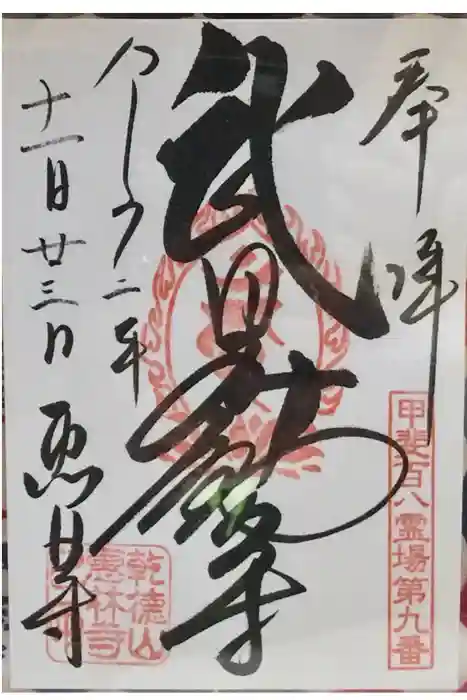 奉拝
甲斐百八霊場第九番
武田
令和二年
十一月廿三日
恵林寺
乾徳山
恵林寺